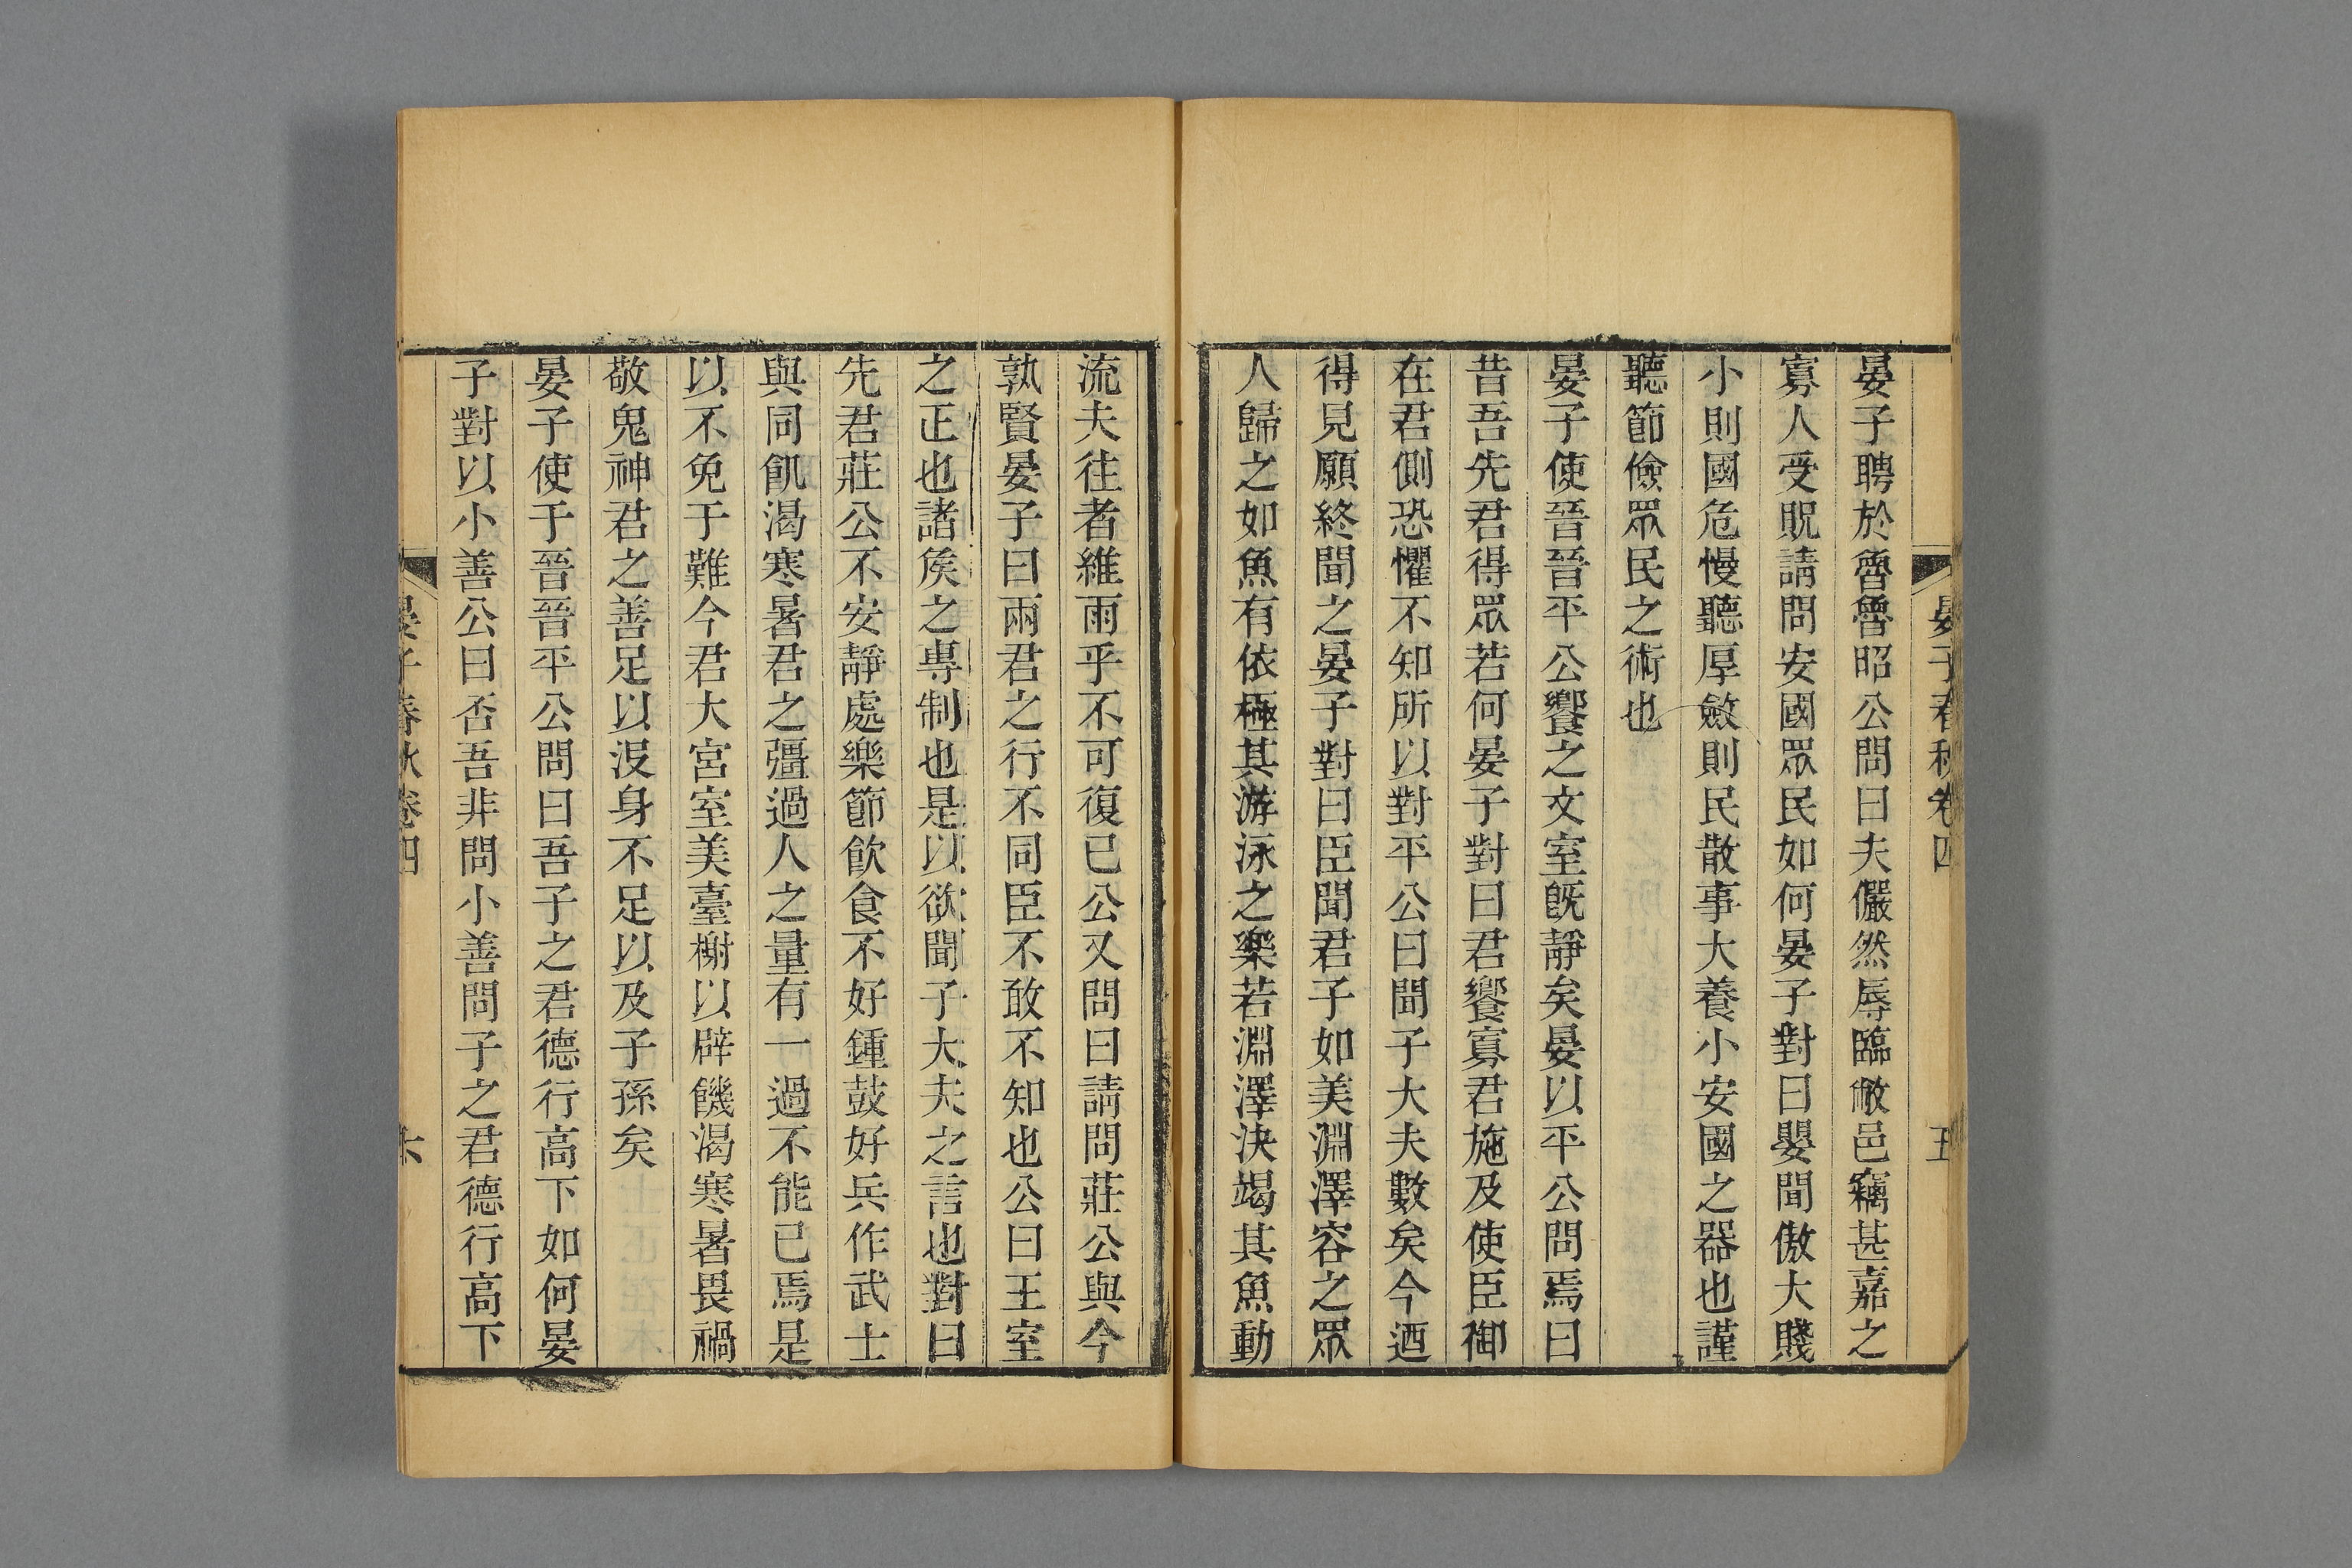 晏子春秋卷四
五
晏子聘於魯魯昭公問曰夫儼然辱臨敝邑竊甚嘉之
寡人受貺請問安國眾民如何晏子對曰嬰聞傲大賤
小則國危慢聽厚斂則民散事大養小安國之器也謹
聽節儉眾民之術也
晏子使晉晉平公饗之文室既靜矣晏以平公問焉曰
昔吾先君得眾若何晏子對曰君饗寡君施及使臣御
在君側恐懼不知所以對平公曰聞子大夫數矣今迺
得見願終聞之晏子對曰臣聞君子如美淵澤容之眾
人歸之如魚有依極其游泳之樂若淵澤決竭其魚動
流夫往者維雨乎不可復已公又問曰請問莊公與今
孰賢晏子曰兩君之行不同臣不敢不知也公曰王室
之正也諸矦之專制也是以欲聞子大夫之言也對曰
先君莊公不安靜處樂節飲食不好鍾鼓好兵作武士
與同飢渴寒暑君之彊過人之量有一過不能已焉是
以不免于難今君大宮室美臺榭以辟饑渴寒暑畏禍
敬鬼神君之善足以沒身不足以及子孫矣
晏子使于晉晉平公問曰吾子之君德行高下如何晏
子對以小善公曰否吾非問小善問子之君德行高下
晏子春秋卷四
六